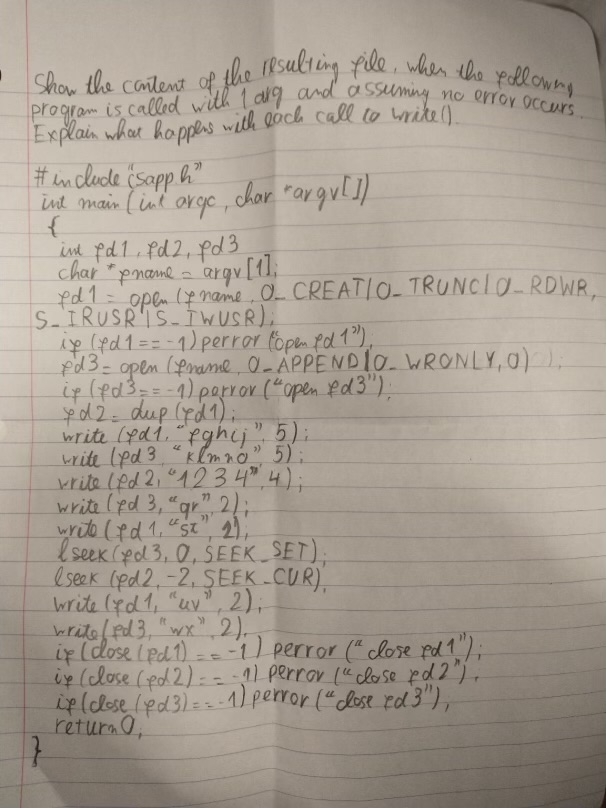 Show the content of the resulting file, when the following
program is called with 1 arg and assuming no error occurs.
Explain what happens with each call to write().
#include "csapp.h"
int main(int argc, char *argv[])
{
int fd1, fd2, fd3
char *fname = argv[1];
fd1 = open(fname, O_CREAT|O_TRUNC|O_RDWR,
S_IRUSR|S_IWUSR);
if (fd1 == -1) perror("open fd1");
fd3 = open(fname, O_APPEND|O_WRONLY, 0);
if (fd3 == -1) perror("open fd3");
fd2 = dup(fd1);
write(fd1, "fghij", 5);
write(fd3, "klmno", 5);
write(fd2, "1234", 4);
write(fd3, "qr", 2);
write(fd1, "st", 2);
lseek(fd3, 0, SEEK_SET);
lseek(fd2, -2, SEEK_CUR);
write(fd1, "uv", 2);
write(fd3, "wx", 2);
if (close(fd1) == -1) perror("close fd1");
if (close(fd2) == -1) perror("close fd2");
if (close(fd3) == -1) perror("close fd3");
return 0;
}